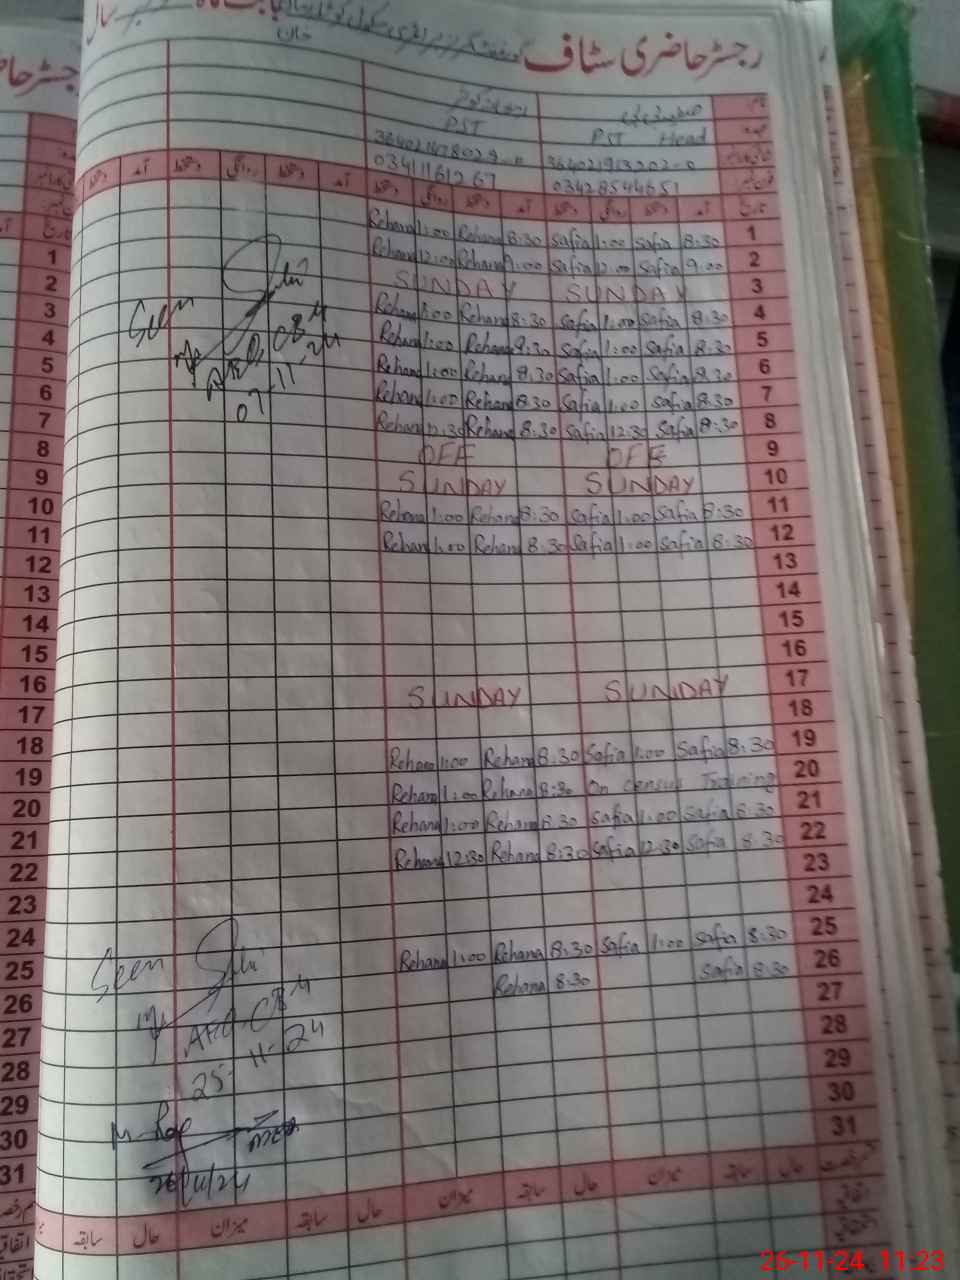 رجسٹر حاضری سٹاف
PST Head PST
364021913202-0
03428544651 03411161267
تاریخ آمد دستخط روانگی دستخط آمد دستخط روانگی دستخط آمد دستخط روانگی دستخط آمد دستخط
Rehana 1:00 Rehana 8:30 Safia 1:00 Safia 8:30 1
Rehana 12:00 Rehana 9:00 Safia 12:00 Safia 9:00 2
SUNDAY SUNDAY 3
Rehana 1:00 Rehana 8:30 Safia 1:00 Safia 8:30 4
Rehana 1:00 Rehana 8:30 Safia 1:00 Safia 8:30 5
Rehana 1:00 Rehana 8:30 Safia 1:00 Safia 8:30 6
Rehana 1:00 Rehana 8:30 Safia 1:00 Safia 8:30 7
Rehana 12:30 Rehana 8:30 Safia 12:30 Safia 8:30 8
OFF OFF 9
SUNDAY SUNDAY 10
Rehana 1:00 Rehana 8:30 Safia 1:00 Safia 8:30 11
Rehana 1:00 Rehana 8:30 Safia 1:00 Safia 8:30 12
13
14
15
16
SUNDAY SUNDAY 17
18
Rehana 1:00 Rehana 8:30 Safia 1:00 Safia 8:30 19
Rehana 1:00 Rehana 8:30 On Census Training 20
Rehana 1:00 Rehana 8:30 Safia 1:00 Safia 8:30 21
Rehana 12:30 Rehana 8:30 Safia 12:30 Safia 8:30 22
23
24
Rehana 1:00 Rehana 8:30 Safia 1:00 Safia 8:30 25
Rehana 8:30 Safia 8:30 26
27
28
29
30
31
Seen
07-11-24
Seen
25-11-24
26/11/24
حال سابقہ میزان حال سابقہ میزان حال سابقہ میزان حال سابقہ
اتفاقیہ
1
2
3
4
5
6
7
8
9
10
11
12
13
14
15
16
17
18
19
20
21
22
23
24
25
26
27
28
29
30
31
26-11-24 11:23